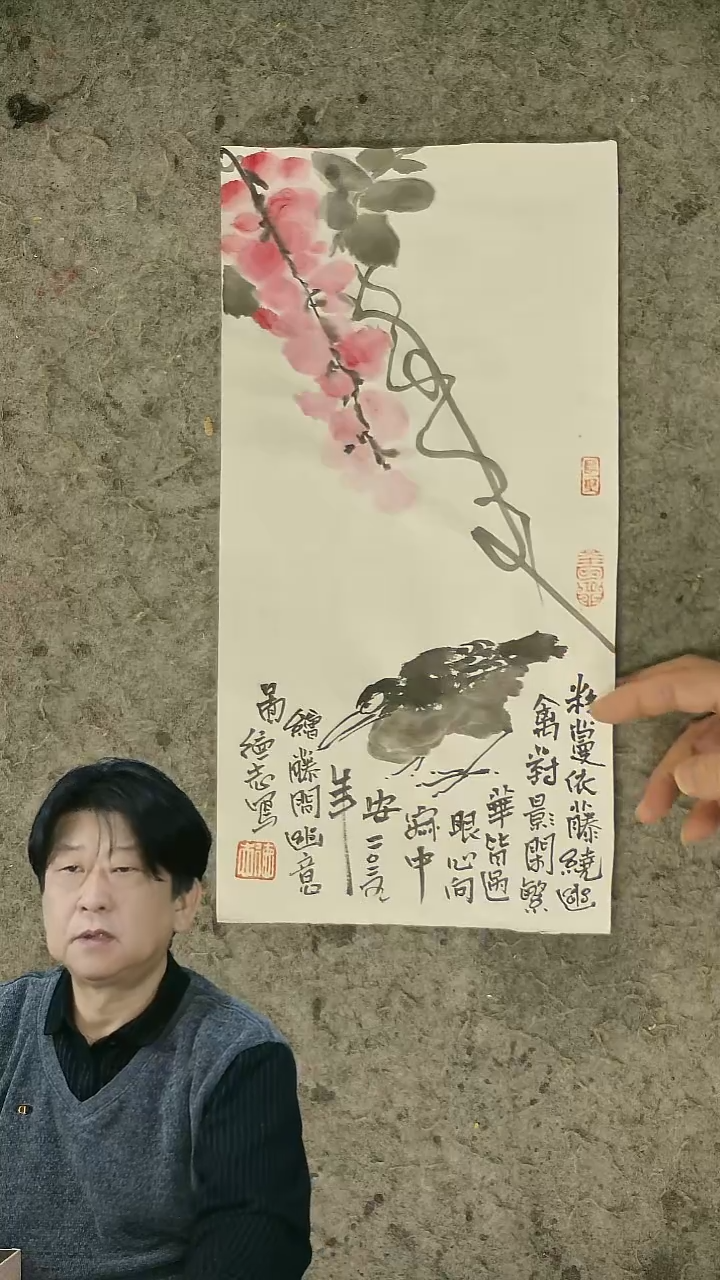 蔓依藤繞幽
禽對景閑繁
華皆過
眼心向
寂中
安二〇二五
年
繪藤間幽意
德志寫